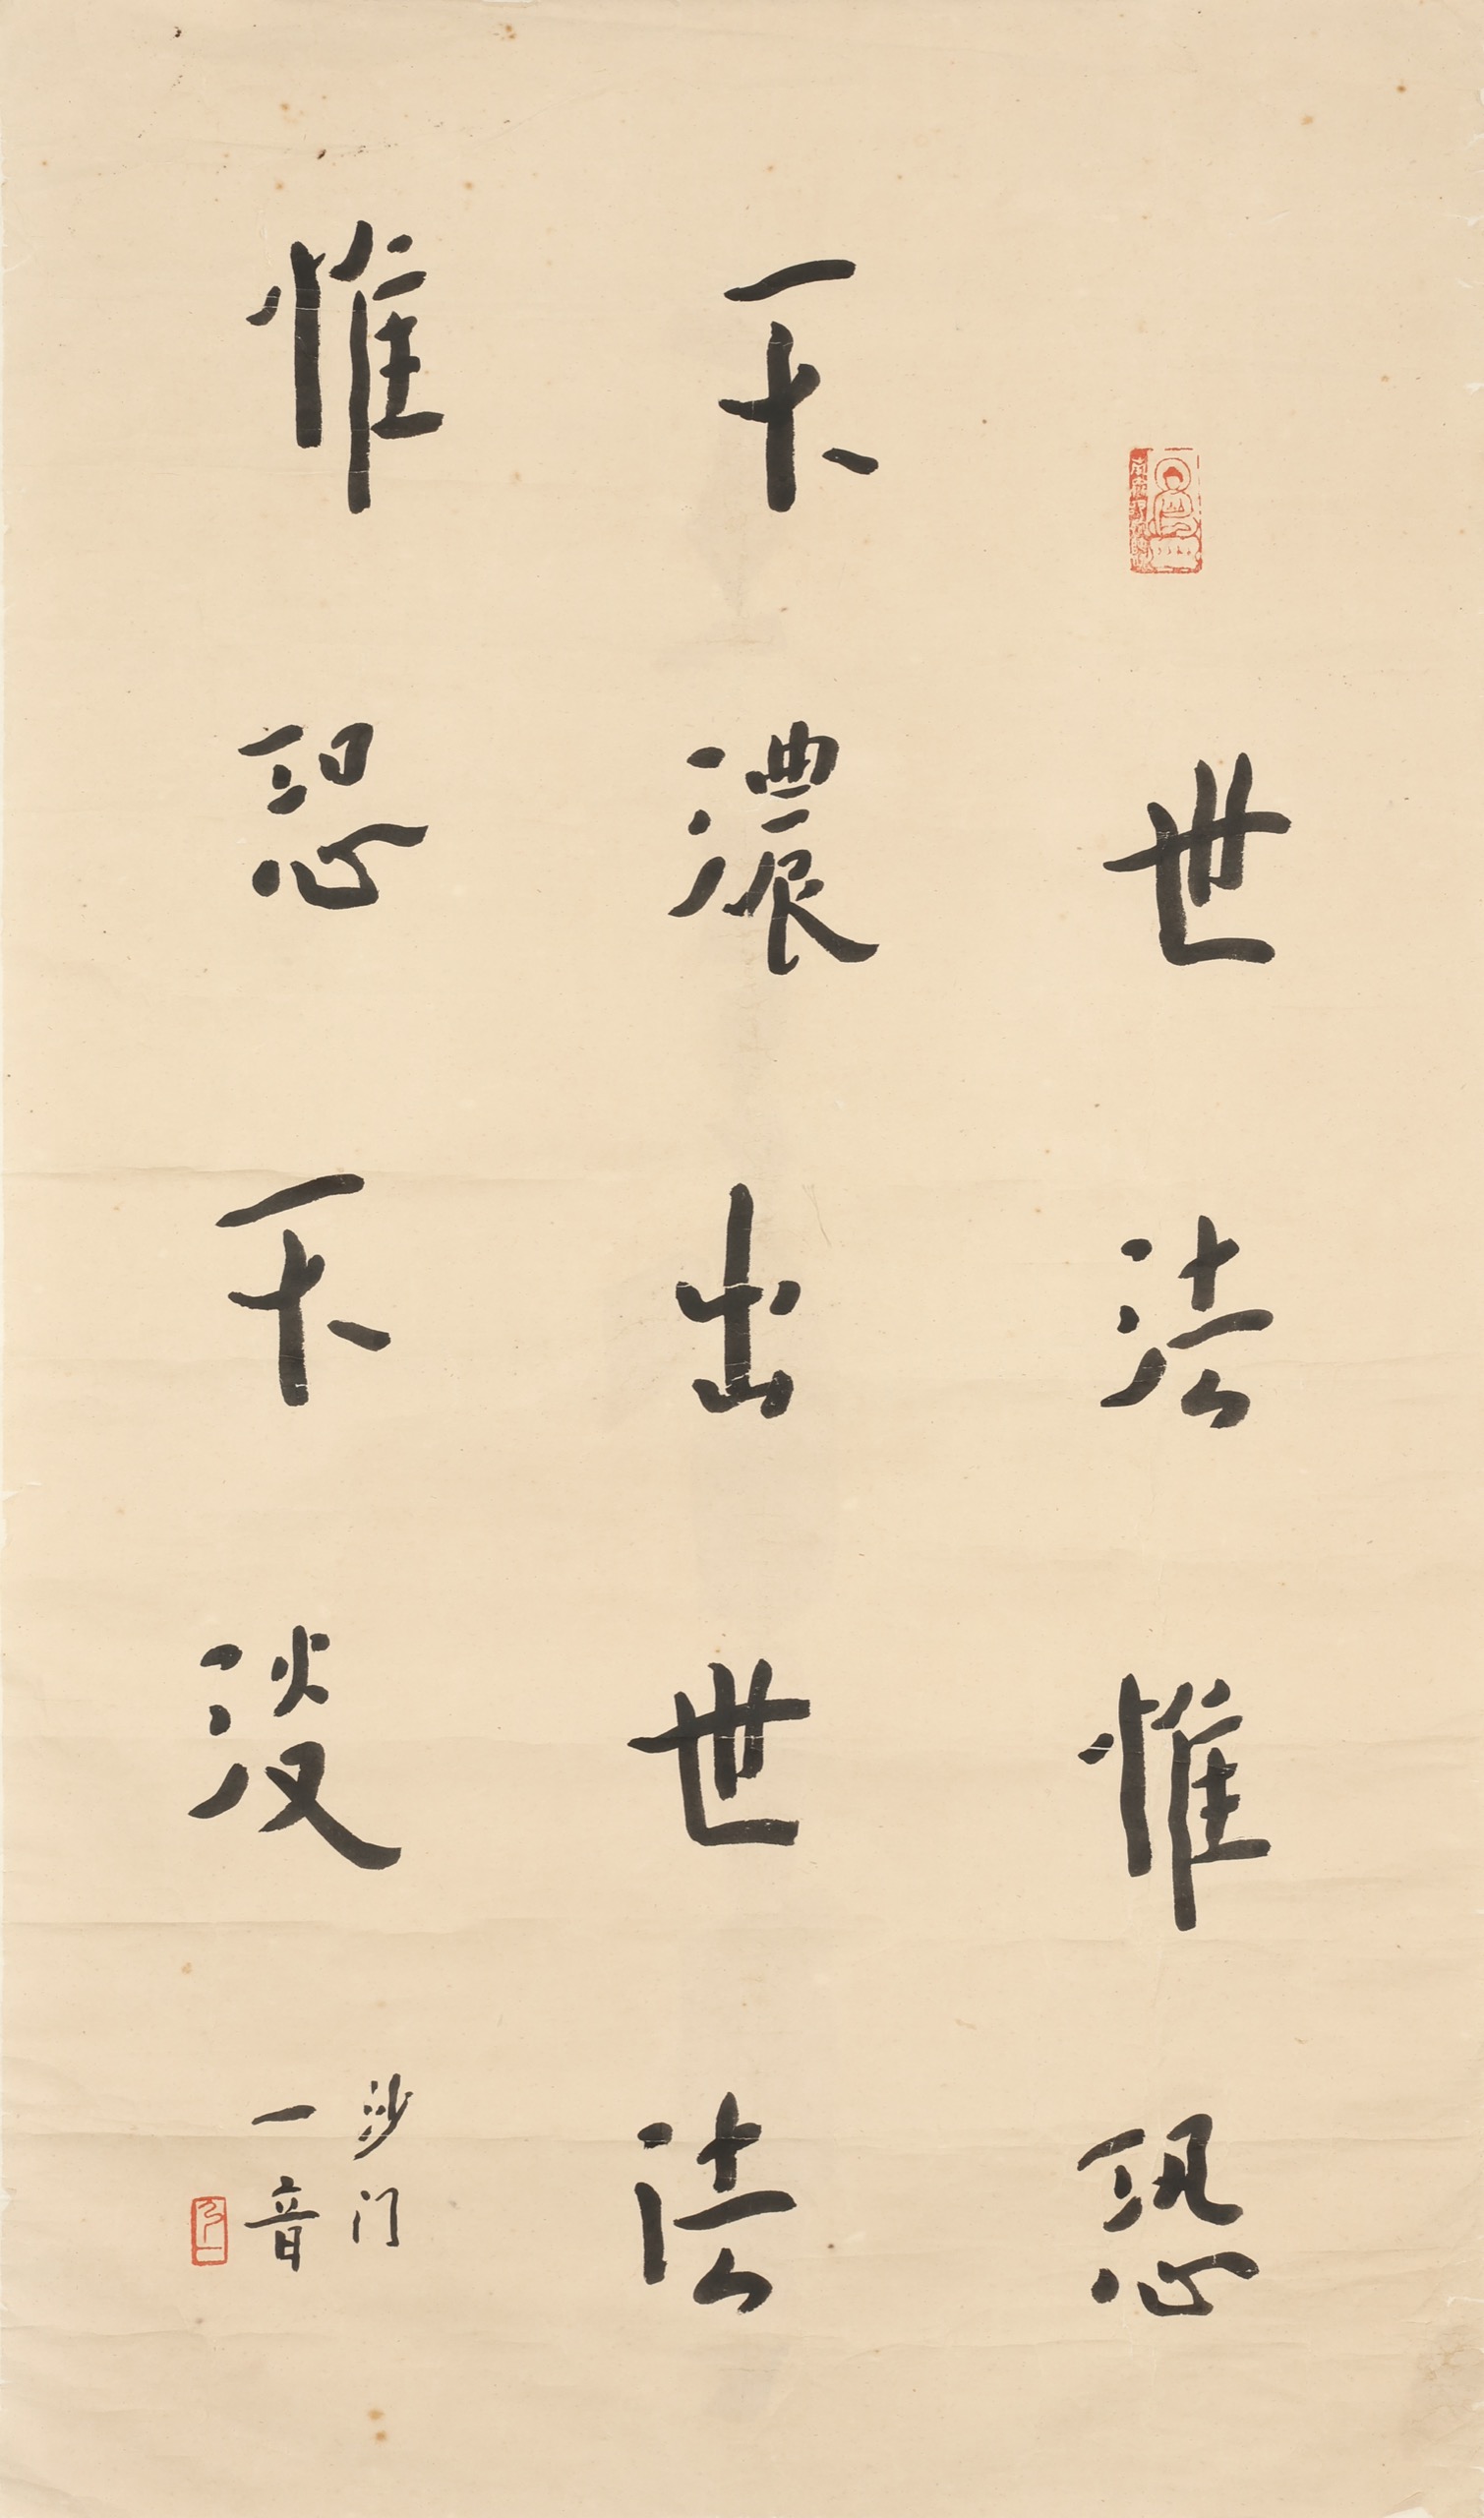 世法惟恐
不濃出世法
惟恐不淡
沙门
一音